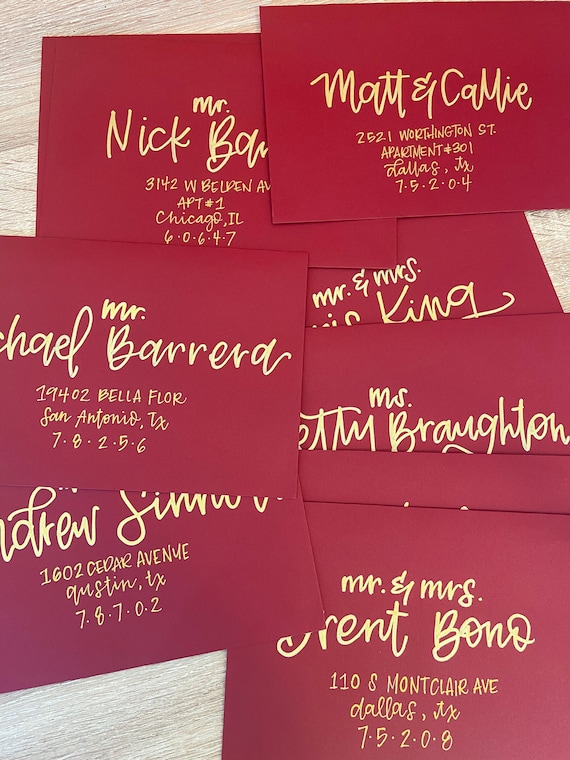 mr.
Nick Ba
3142 W BELDEN AV
APT #1
Chicago, IL
6·0·6·4·7
Matt & Callie
2521 WORTHINGTON ST.
APARTMENT #301
dallas, tx
7·5·2·0·4
mr. & mrs.
is King
mr.
chael Barrera
19402 BELLA FLOR
San Antonio, Tx
7·8·2·5·6
ms.
etty Braughton
ndrew
1602 CEDAR AVENUE
austin, tx
7·8·7·0·2
mr. & mrs.
rent Bono
110 S MONTCLAIR AVE
dallas, tx
7·5·2·0·8